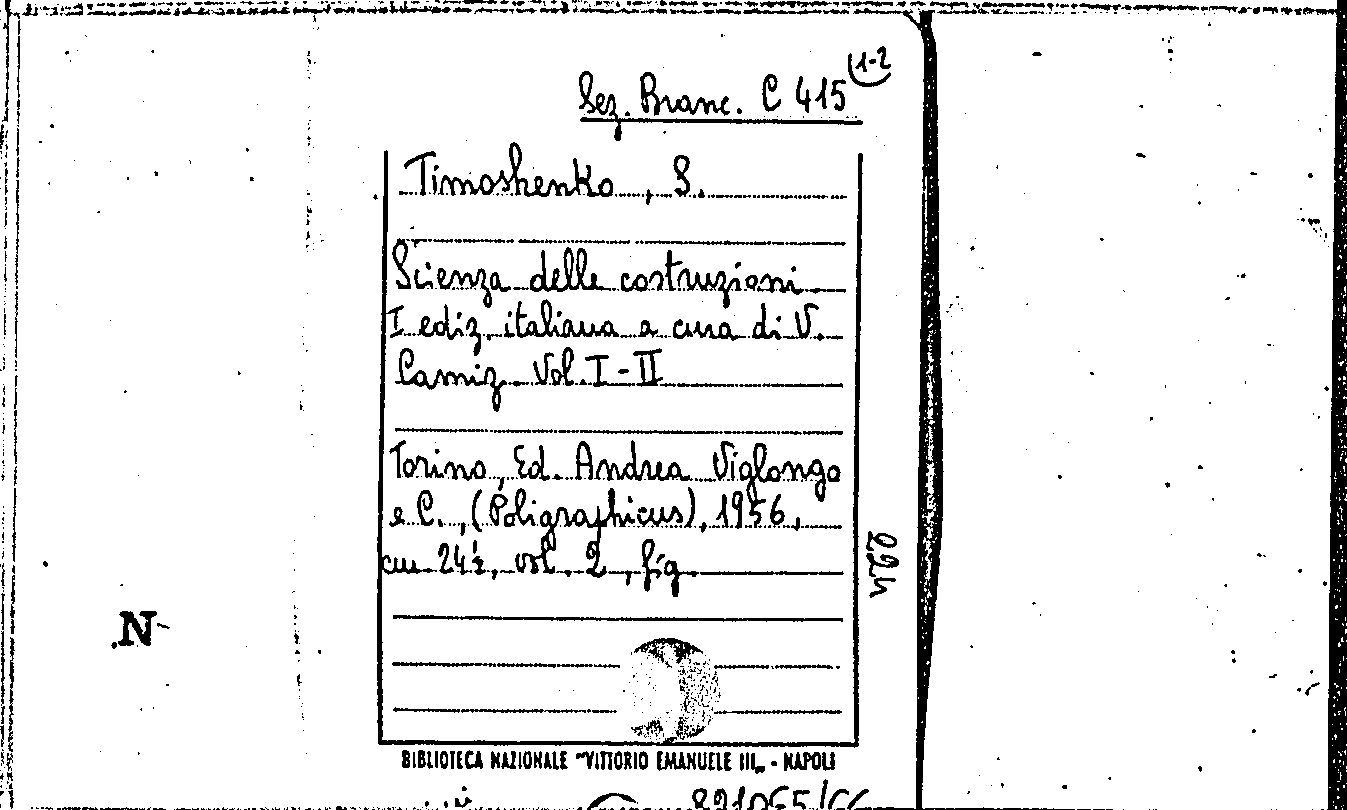 Sez. Branc. C 415 (1-2
Timoshenko, S.
Scienza delle costruzioni
I ediz. italiana a cura di V.
Camiz. Vol. I - II
Torino, Ed. Andrea Viglongo
e C., (Poligraphicus), 1956,
cm 24½, vol. 2, fig.
224
N
BIBLIOTECA NAZIONALE "VITTORIO EMANUELE III„ - NAPOLI